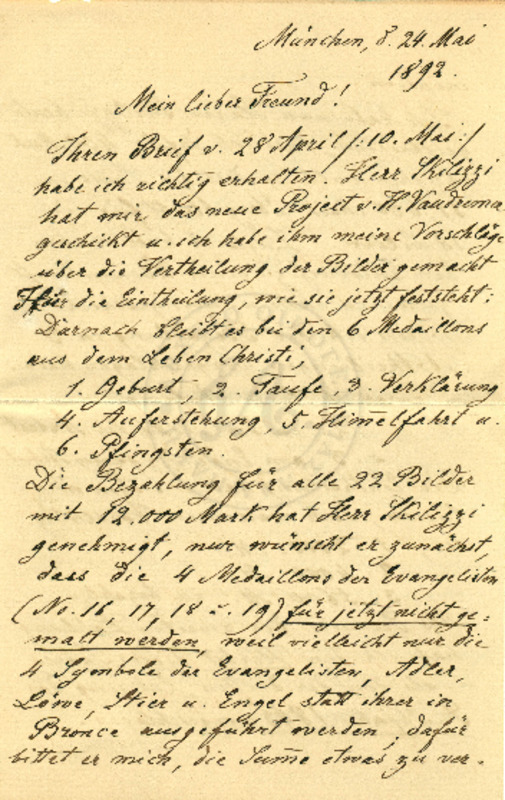 München, d. 24. Mai
1892.
Mein lieber Freund!
Ihren Brief v. 28 April /:10. Mai:/
habe ich richtig erhalten. Herr Skilizzi
hat mir das neue Project v. H. Vaudremer
geschickt u. ich habe ihm meine Vorschläge
über die Vertheilung der Bilder gemacht
für die Eintheilung, wie sie jetzt feststeht:
Darnach bleibt es bei den 6 Medaillons
aus dem Leben Christi;
1. Geburt, 2. Taufe, 3. Verklärung
4. Auferstehung 5. Him̅elfahrt u.
6. Pfingsten.
Die Bezahlung für alle 22 Bilder
mit 12.000 Mark hat Herr Skilizzi
genehmigt, nur wünscht er zunächst,
dass die 4 Medaillons der Evangelisten
(No. 16, 17, 18 u. 19) für jetzt nicht ge=
malt werden, weil vielleicht nur die
4 Symbole der Evangelisten, Adler,
Löwe, Stier u. Engel statt ihrer in
Bronce ausgeführt werden, dafür
bittet er mich, die Sum̅e etwas zu ver-